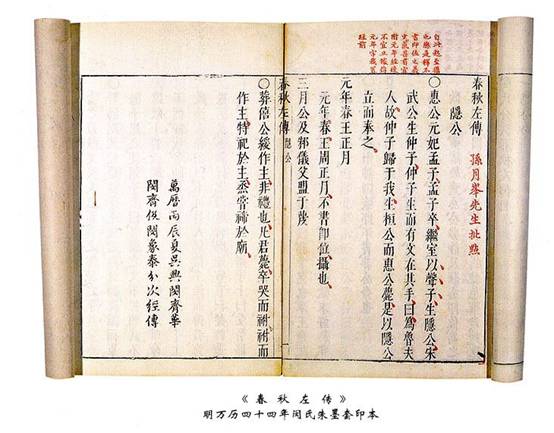 春秋左傳
孫月峯先生批點
隱公
○惠公元妃孟子孟子卒繼室以聲子生隱公宋
武公生仲子仲子生而有文在其手曰爲魯夫
人故仲子歸于我生桓公而惠公薨是以隱公
立而奉之
元年春王正月
元年春王周正月不書卽位攝也
三月公及邾儀父盟于蔑
春秋左傳 隱公
○葬僖公緩作主非禮也凡君薨卒哭而祔祔而
作主特祀於主烝嘗禘於廟
萬曆丙辰夏吳興閔齊華
閔齊伋閔象泰分次經傳
《春秋左传》
明万历四十四年闵氏朱墨套印本